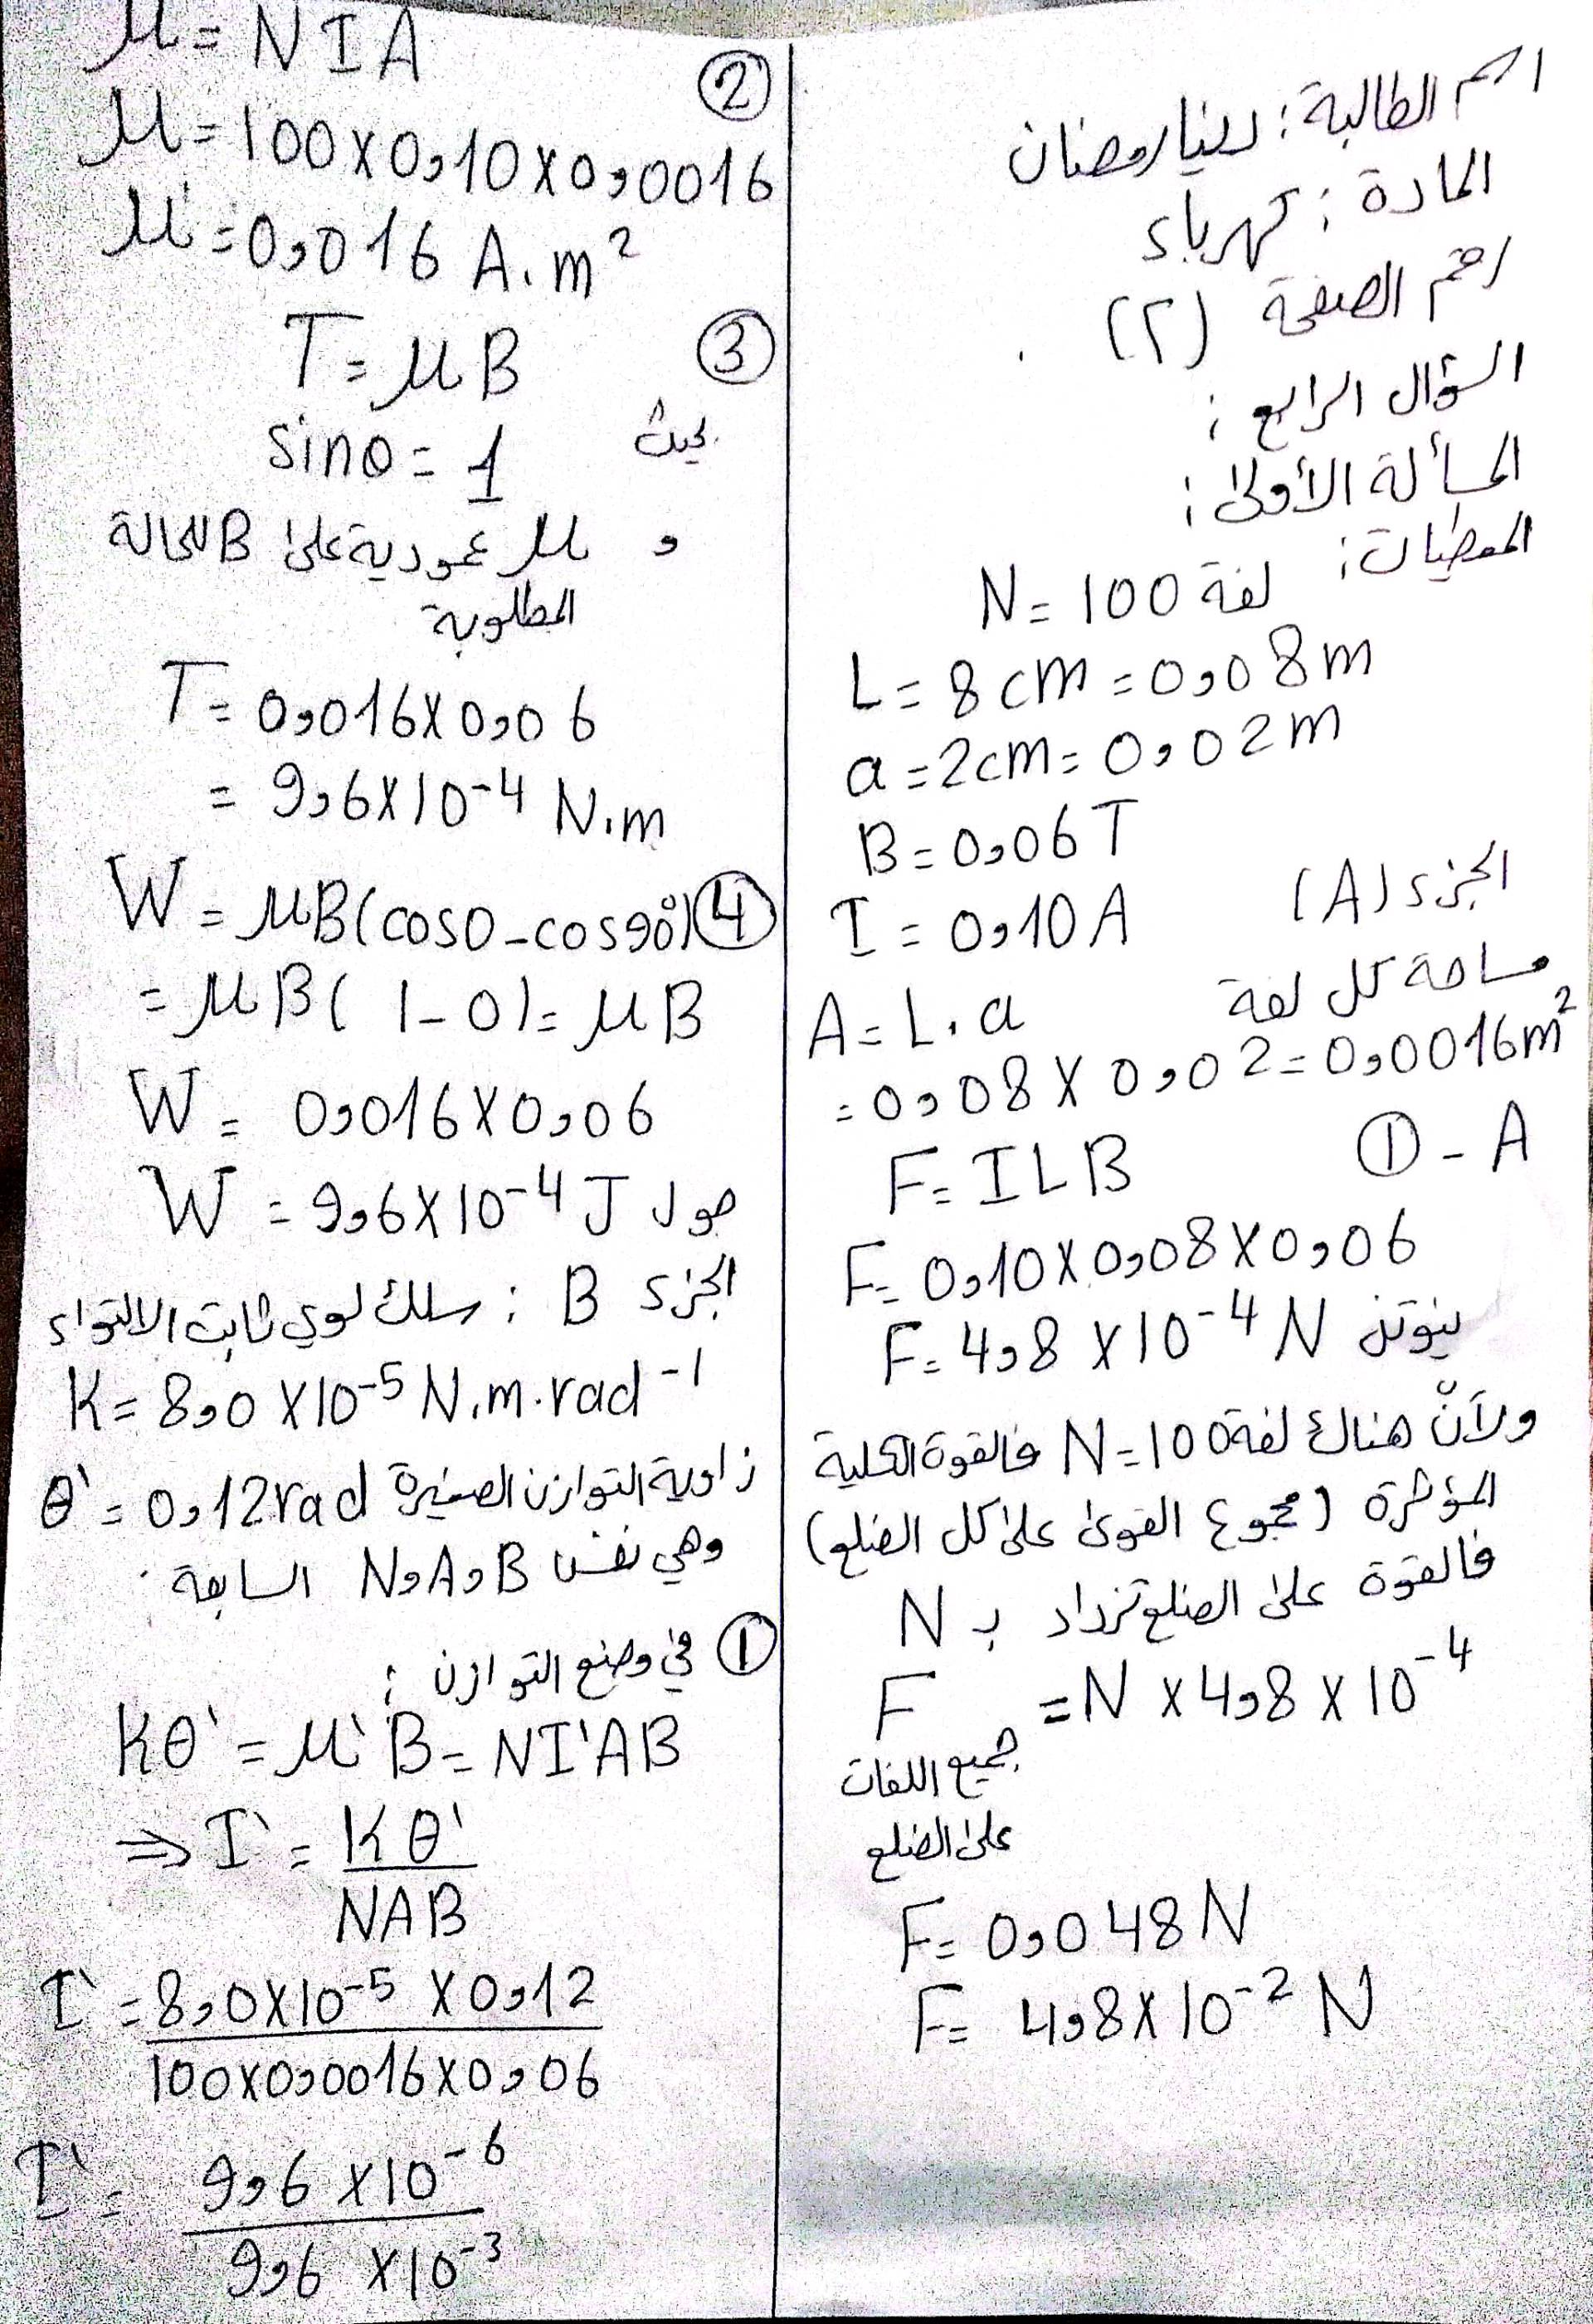 اسم الطالبة: دنيا رمضان
المادة: كهرباء
رقم الصفحة (٢)
السؤال الرابع:
المسألة الأولى:
المعطيات: N = 100 لفة
L = 8 cm = 0,08 m
a = 2cm = 0,02 m
B = 0,06 T
الجزء (A) I = 0,10 A
مساحة كل لفة A = L . a
= 0,08 X 0,02 = 0,0016 m²
A - ① F = I L B
F = 0,10 X 0,08 X 0,06
F = 4,8 X 10⁻⁴ N نيوتن
ولأنّ هناك لفة N = 100 فالقوة الكلية
المؤثرة (مجموع القوى على كل الضلع)
فالقوة على الضلع تزداد بـ N
F = N X 4,8 X 10⁻⁴
جميع اللفات
على الضلع
F = 0,048 N
F = 4,8 X 10⁻² N
μ = N I A
② μ = 100 X 0,10 X 0,0016
μ = 0,016 A.m²
③ T = μB
بحيث sinθ = 1
و μ عمودية على B للحالة
المطلوبة
T = 0,016 X 0,06
= 9,6 X 10⁻⁴ N.m
④ W = μB(cos0 - cos90°)
= μB( 1 - 0) = μB
W = 0,016 X 0,06
W = 9,6 X 10⁻⁴ J جول
الجزء B : سلك لوي ثابت الالتواء
K = 8,0 X 10⁻⁵ N.m.rad⁻¹
زاوية التوازن الصغيرة θ' = 0,12 rad
وهي نفس B و A و N السابقة.
① في وضع التوازن:
Kθ' = μ'B = NI'AB
⇒ I' = Kθ'
NAB
I' = 8,0X10⁻⁵ X 0,12
100X0,0016X0,06
I' = 9,6 X 10⁻⁶
9,6 X 10⁻³